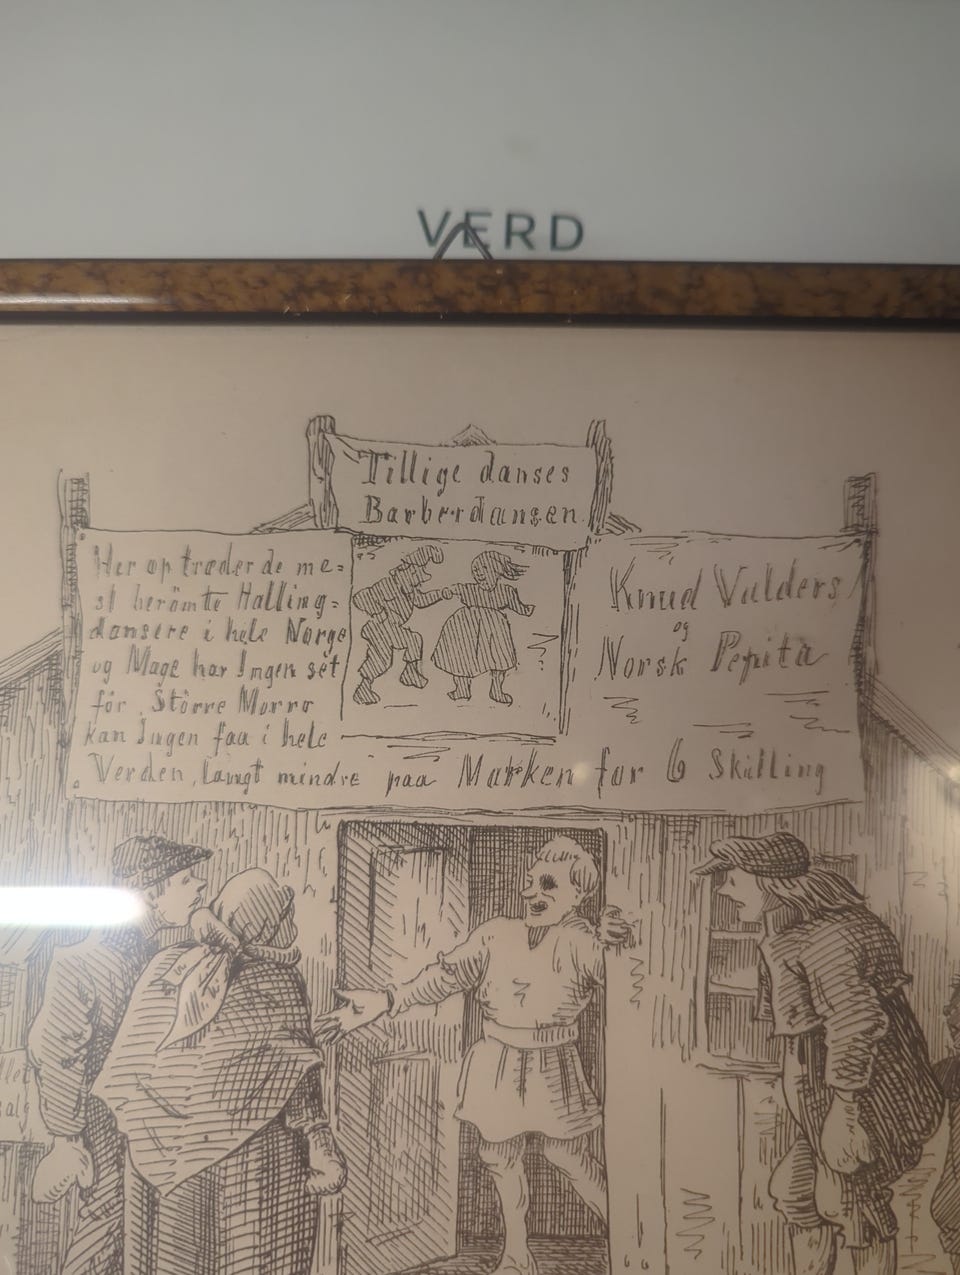 VERD
Tillige danses
Barberdansen
Her optræder de me=
st berömte Halling=
dansere i hele Norge
og Mage har Ingen sét
för. Större Morro
kan Ingen faa i hele
Verden, langt mindre paa Marken for 6 Skilling
Knud Valders
og
Norsk Pepita